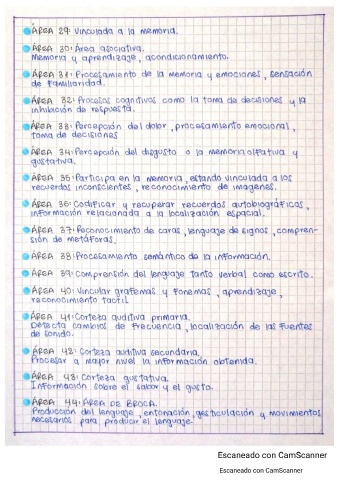 ÁREA 29: Vinculada a la memoria.
ÁREA 30: Área asociativa.
Memoria y aprendizaje, acondicionamiento.
ÁREA 31: Procesamiento de la memoria y emociones, sensación
de familiaridad.
ÁREA 32: Procesos cognitivos como la toma de decisiones y la
inhibición de respuesta.
ÁREA 33: Percepción del dolor, procesamiento emocional,
toma de decisiones
ÁREA 34: Percepción del disgusto o la memoria olfativa y
gustativa.
ÁREA 35: Participa en la memoria, estando vinculada a los
recuerdos inconscientes, reconocimiento de imagenes.
ÁREA 36: Codificar y recuperar recuerdos autobiográficos,
información relacionada a la localización espacial.
ÁREA 37: Reconocimiento de caras, lenguaje de signos, compren-
sión de metáforas.
ÁREA 38: Procesamiento semántico de la información.
ÁREA 39: Comprensión del lenguaje tanto verbal como escrito.
ÁREA 40: Vincular grafemas y fonemas, aprendizaje,
reconocimiento tactil
ÁREA 41: Corteza auditiva primaria.
Detecta cambios de frecuencia, localización de las fuentes
de sonido.
ÁREA 42: Corteza auditiva secundaria.
Procesar a mayor nivel la información obtenida.
ÁREA 43: Corteza gustativa.
Información sobre el sabor y el gusto.
ÁREA 44: ÁREA DE BROCA.
Producción del lenguaje, entonación, gesticulación y movimientos
necesarios para producir el lenguaje.
Escaneado con CamScanner
Escaneado con CamScanner